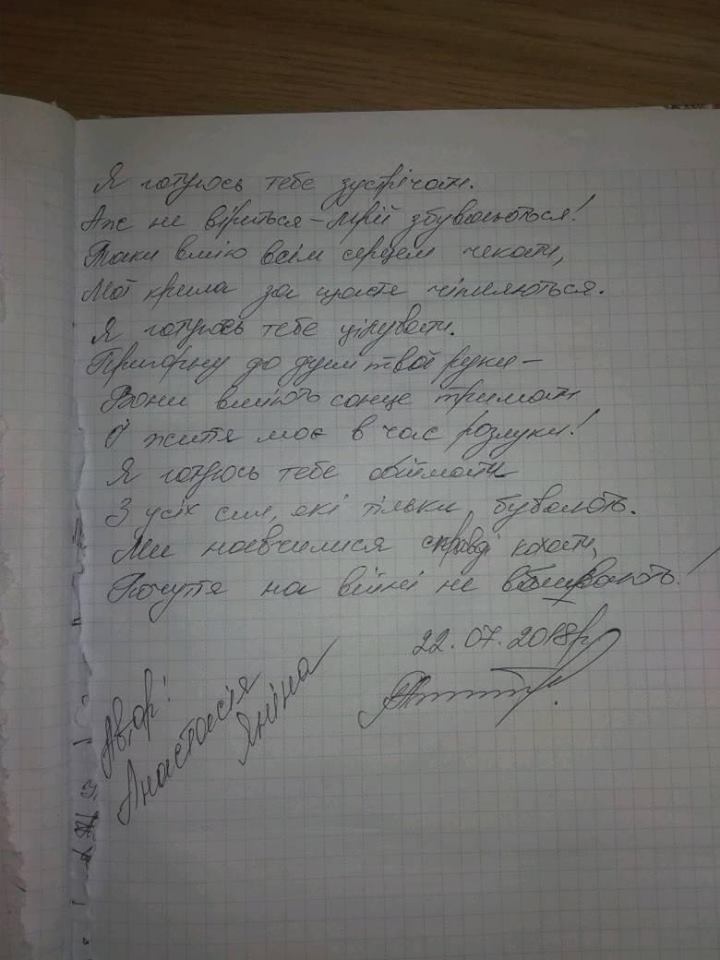 Я готуюсь тебе зустрічати.
Аж не віриться – мрії збуваються!
Таки вмію всім серцем чекати,
Мої крила за щастя чіпляються.
Я готуюсь тебе цілувати.
Пригорну до душі твої руки –
Вони вміють сонце тримати
І життя моє в час розлуки!
Я готуюсь тебе обіймати
З усіх сил, які тільки бувають.
Ми навчилися справді кохати,
Почуття на війні не вбивають!
22.07.2018р
Автор:
Анастасія
Яніна